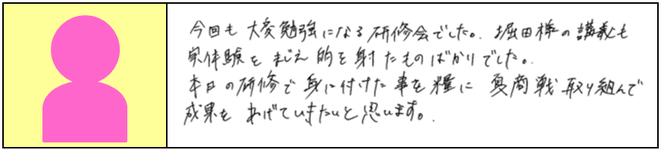 今回も大変勉強になる研修会でした。堀田様の講義も
実体験をまじえ的を射たものばかりでした。
本日の研修で身に付けた事を糧に夏商戦取り組んで
成果をあげていきたいと思います。